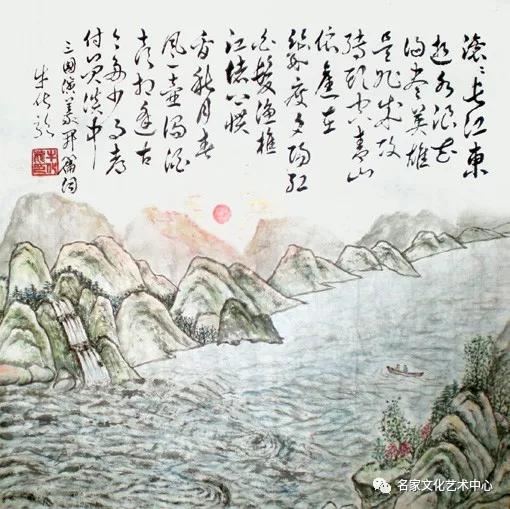 滚〻长江東
逝水浪花
淘尽英雄
是非成敗
转頭空青山
依旧在
幾度夕陽红
白髮渔樵
江渚上惯
看秋月春
風一壶濁酒
喜相逢古
今多少事都
付笑谈中
三國演義開篇词
名家文化艺术中心